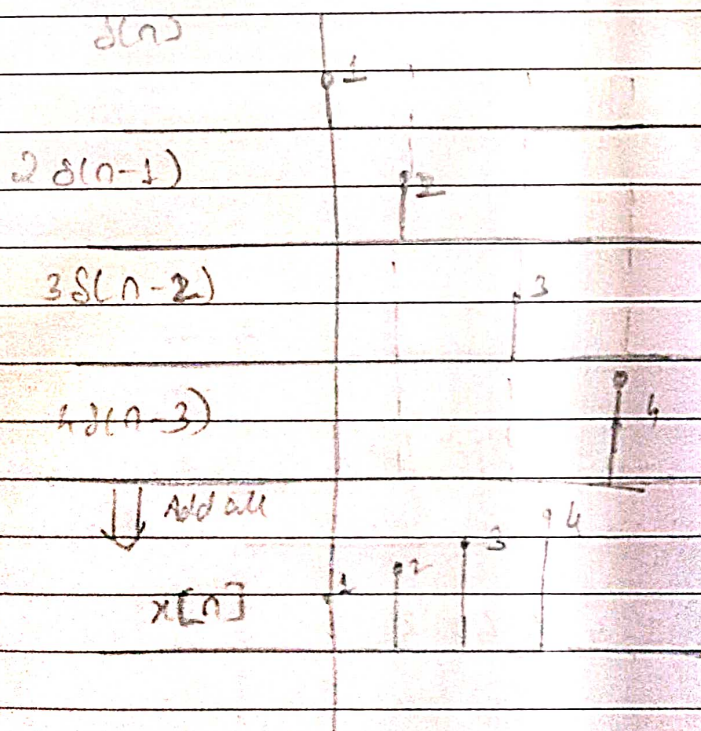 δ(n)
1
2 δ(n-1)
2
3 δ(n-2)
3
4 δ(n-3)
4
Add all
x[n]
1 2 3 4